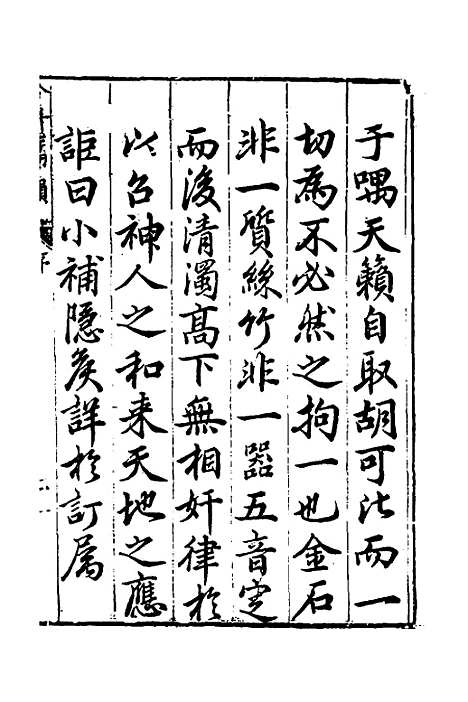 于喁天籟自取胡可比而一
切為不必然之拘一也金石
非一質絲竹非一器五音定
而後清濁高下無相奸律於
以召神人之和来天地之應
詎曰小補隱矣詳於訂屬
序